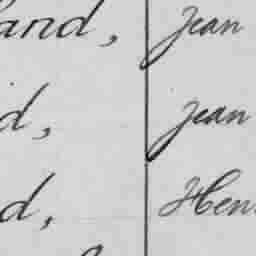 and, Jean
d, Jean
d, Hen